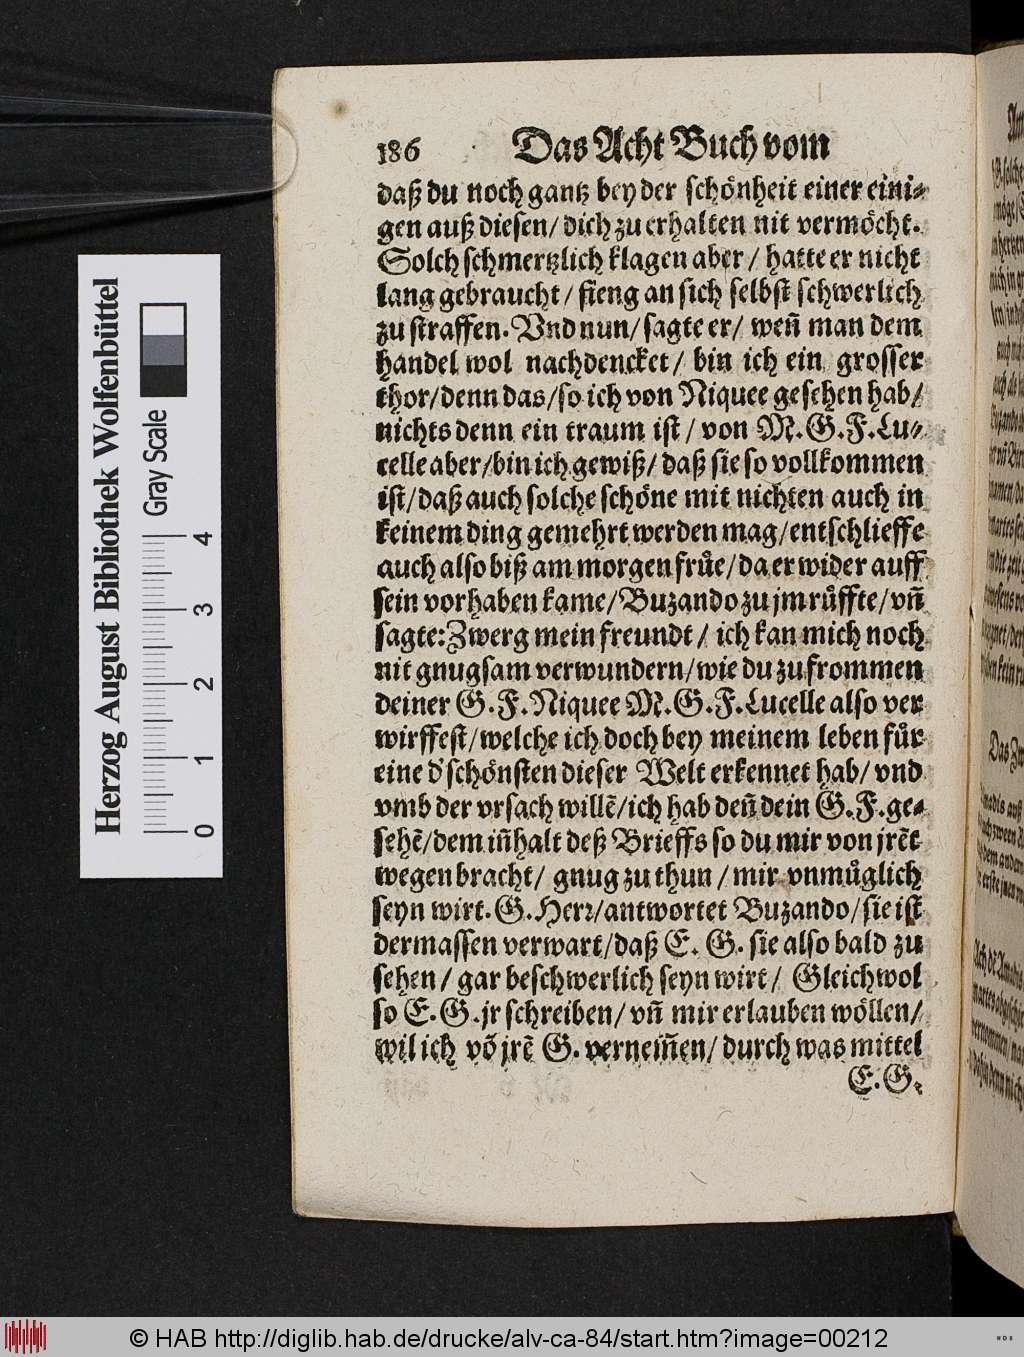 186 Das Acht Buch vom
daß du noch gantz bey der schönheit einer eini-
gen auß diesen/ dich zu erhalten nit vermöcht.
Solch schmertzlich klagen aber / hatte er nicht
lang gebraucht / fieng an sich selbst schwerlich
zu straffen. Vnd nun/ sagte er/ weñ man dem
handel wol nachdencket/ bin ich ein grosser
thor/denn das/so ich von Niquee gesehen hab/
nichts denn ein traum ist / von M.G.F.Lu-
celle aber/bin ich gewiß/ daß sie so vollkommen
ist/daß auch solche schöne mit nichten auch in
keinem ding gemehrt werden mag/entschlieffe
auch also biß am morgen früe/da er wider auff
sein vorhaben kame/Buzando zu jm rüffte/vñ
sagte:Zwerg mein freundt / ich kan mich noch
nit gnugsam verwundern/wie du zu frommen
deiner G.F.Niquee M.G.F.Lucelle also ver
wirffest/welche ich doch bey meinem leben für
eine d' schönsten dieser Welt erkennet hab/ vnd
vmb der vrsach willẽ/ich hab deñ dein G.F.ge-
sehẽ/dem iñhalt deß Brieffs so du mir von jrẽt
wegen bracht/ gnug zu thun / mir vnmüglich
seyn wirt. G. Herr/antwortet Buzando/sie ist
dermassen verwart/daß E. G. sie also bald zu
sehen / gar beschwerlich seyn wirt/ Gleichwol
so E.G.jr schreiben/ vñ mir erlauben wöllen/
wil ich võ jrẽ G. verneim̃en/ durch was mittel
E.G.
Herzog August Bibliothek Wolfenbüttel
Gray Scale
0 1 2 3 4
© HAB http://diglib.hab.de/drucke/alv-ca-84/start.htm?image=00212